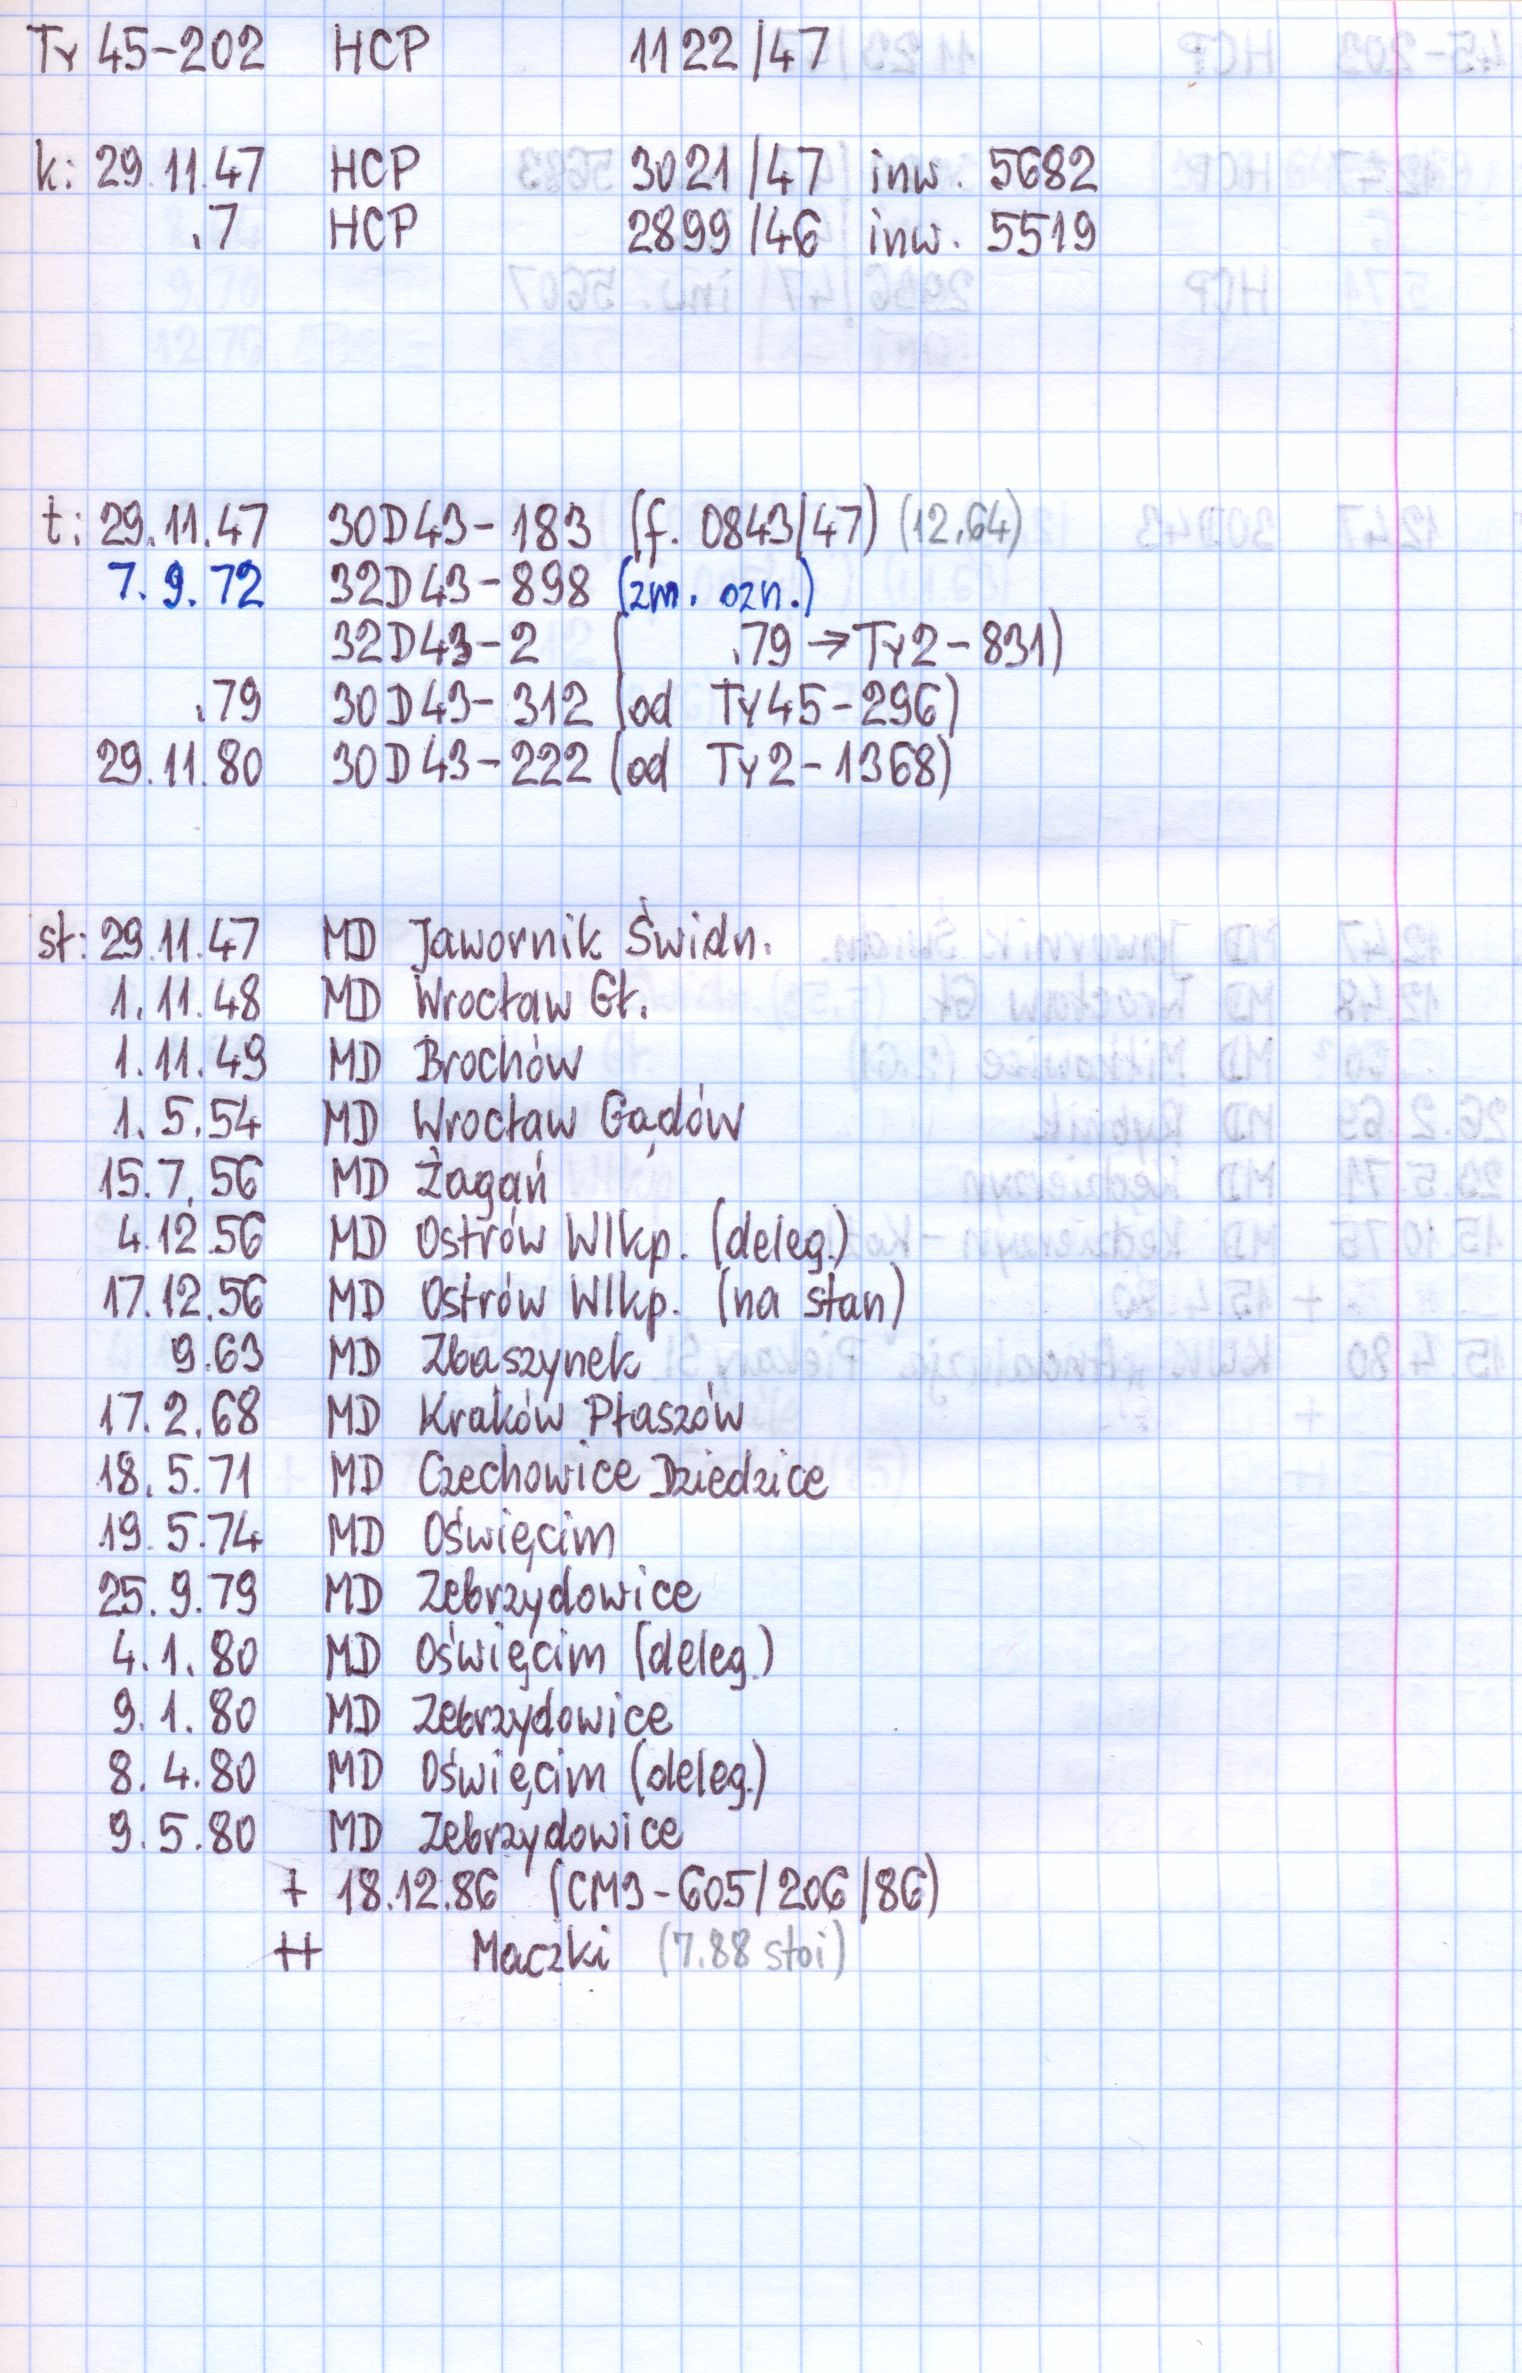 Ty 45-202 HCP 1122/47
k: 29.11.47 HCP 3021/47 inw. 5682
.7 HCP 2899/46 inw. 5519
t: 29.11.47 30D43-183 (f. 0843/47) (12.64)
7.9.72 32D43-898 (zm. ozn.)
32D43-2 ( .79 → Ty2-831)
.79 30D43-312 (od Ty45-296)
29.11.80 30D43-222 (od Ty2-1368)
st: 29.11.47 MD Jawornik Świdn.
1.11.48 MD Wrocław Gł.
1.11.49 MD Brochów
1.5.54 MD Wrocław Gądów
15.7.56 MD Żagań
4.12.56 MD Ostrów Wlkp. (deleg.)
17.12.56 MD Ostrów Wlkp. (na stan)
9.63 MD Zbaszynek
17.2.68 MD Kraków Płaszów
18.5.71 MD Czechowice Dziedzice
19.5.74 MD Oświęcim
25.9.79 MD Zebrzydowice
4.1.80 MD Oświęcim (deleg.)
9.1.80 MD Zebrzydowice
8.4.80 MD Oświęcim (deleg.)
9.5.80 MD Zebrzydowice
+ 18.12.86 (CM3-605/206/86)
++ Maczki (7.88 stoi)